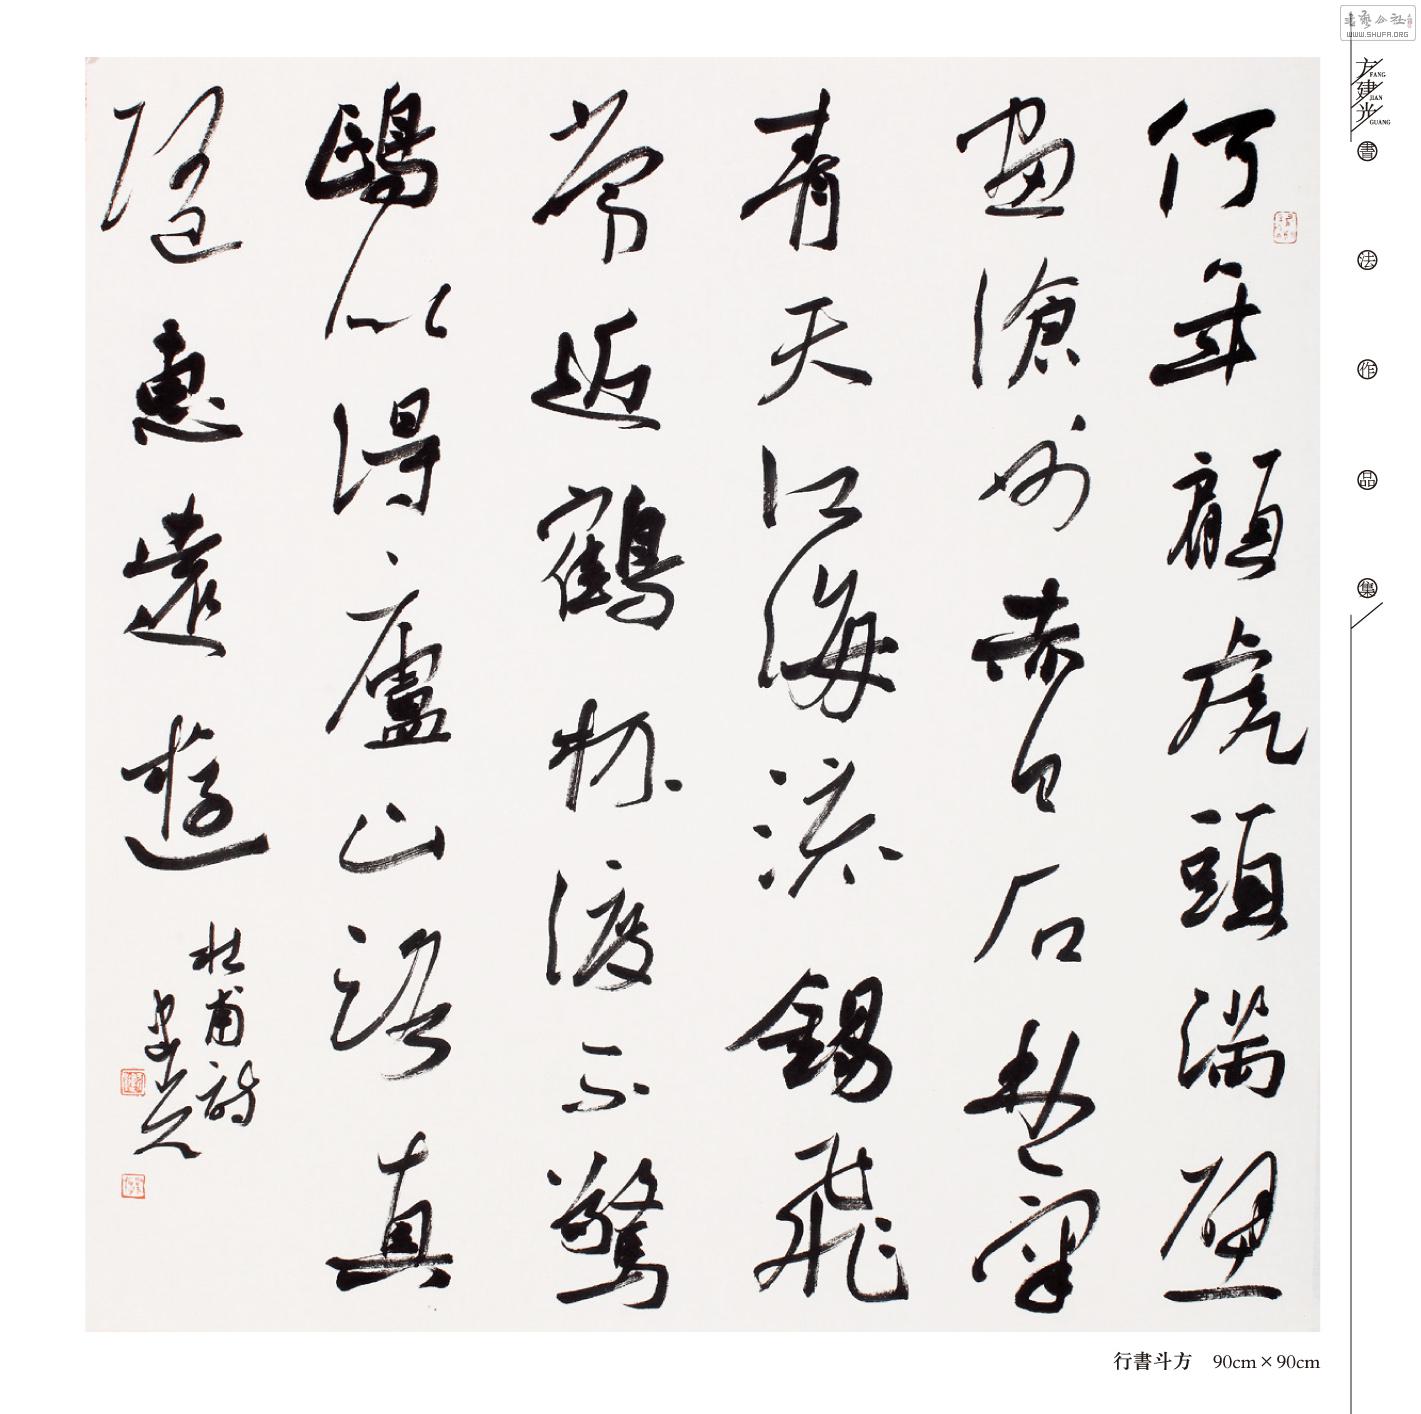 何年顧虎頭滿壁
畫滄州赤日石林氣
青天江海流錫飛
常近鶴杯渡不驚
鷗似得廬山路真
隨惠遠遊
杜甫詩
建光
行書斗方 90cm×90cm
方建光
FANG
JIAN
GUANG
書法作品集
WWW.SHUFA.ORG